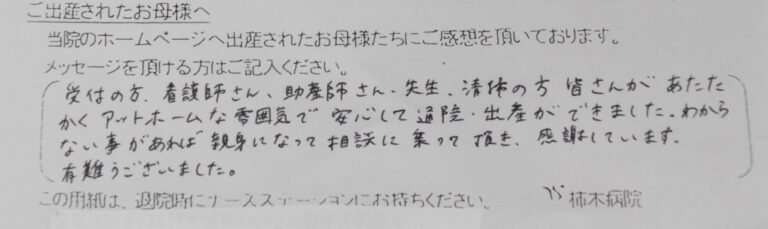 ご出産されたお母様へ
当院のホームページへ出産されたお母様たちにご感想を頂いております。
メッセージを頂ける方はご記入ください。
受付の方、看護師さん、助産師さん、先生、清掃の方 皆さんが あたた
かく アットホームな雰囲気で 安心して通院・出産ができました。わから
ない事があれば親身になって相談に乗って頂き、感謝しています。
有難うございました。
この用紙は、退院時にナースステーションにお持ちください。 柿木病院